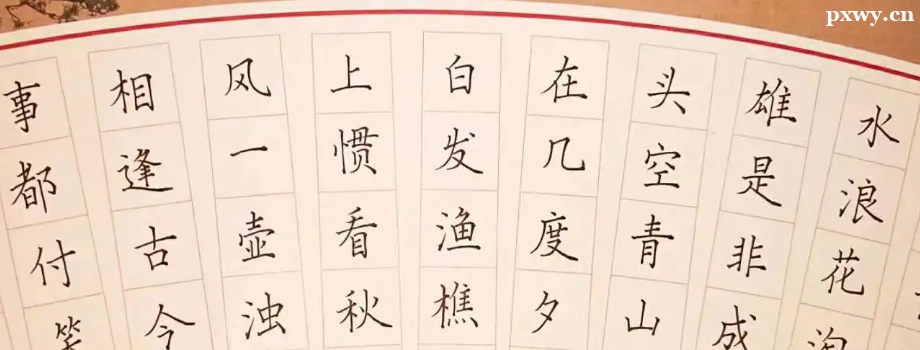 pxwy.cn
水浪花淘
雄是非成
头空青山
在几度夕
白发渔樵
上惯看秋
风一壶浊
相逢古今
事都付笑